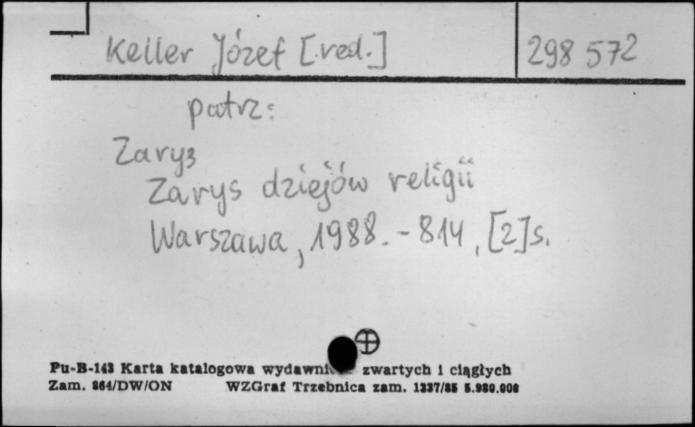 Keller Józef [red.]
298 572
patrz:
Zarys
Zarys dziejów religii
Warszawa, 1988. - 814, [2]s.
Pu-B-143 Karta katalogowa zwartych i ciągłych
Zam. 864/DW/ON WZGraf Trzebnica zam. 1337/85 5.980.000